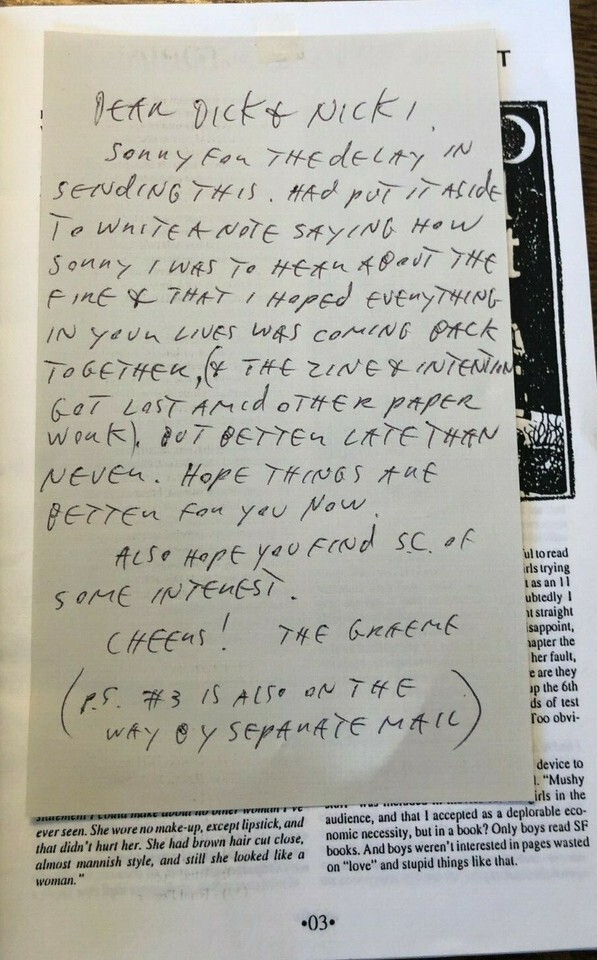 T
DEAR DICK & NICKI,
SORRY FOR THE DELAY IN
SENDING THIS. HAD PUT IT ASIDE
TO WRITE A NOTE SAYING HOW
SORRY I WAS TO HEAR ABOUT THE
FIRE & THAT I HOPED EVERYTHING
IN YOUR LIVES WAS COMING BACK
TOGETHER, (& THE ZINE & INTENTION
GOT LOST AMID OTHER PAPER
WORK). BUT BETTER LATE THAN
NEVER. HOPE THINGS ARE
BETTER FOR YOU NOW.
ALSO HOPE YOU FIND S.C. OF
SOME INTEREST.
CHEERS! THE GRAEME
(P.S. #3 IS ALSO ON THE
WAY BY SEPARATE MAIL)
ul to read
rls trying
t as an 11
ubtedly I
ht straight
sappoint,
hapter the
her fault,
e are they
up the 6th
ds of test
Too obvi-
device to
l. "Mushy
girls in the
audience, and that I accepted as a deplorable eco-
nomic necessity, but in a book? Only boys read SF
books. And boys weren't interested in pages wasted
on "love" and stupid things like that.
statement I could make about no other woman I've
ever seen. She wore no make-up, except lipstick, and
that didn't hurt her. She had brown hair cut close,
almost mannish style, and still she looked like a
woman."
•03•